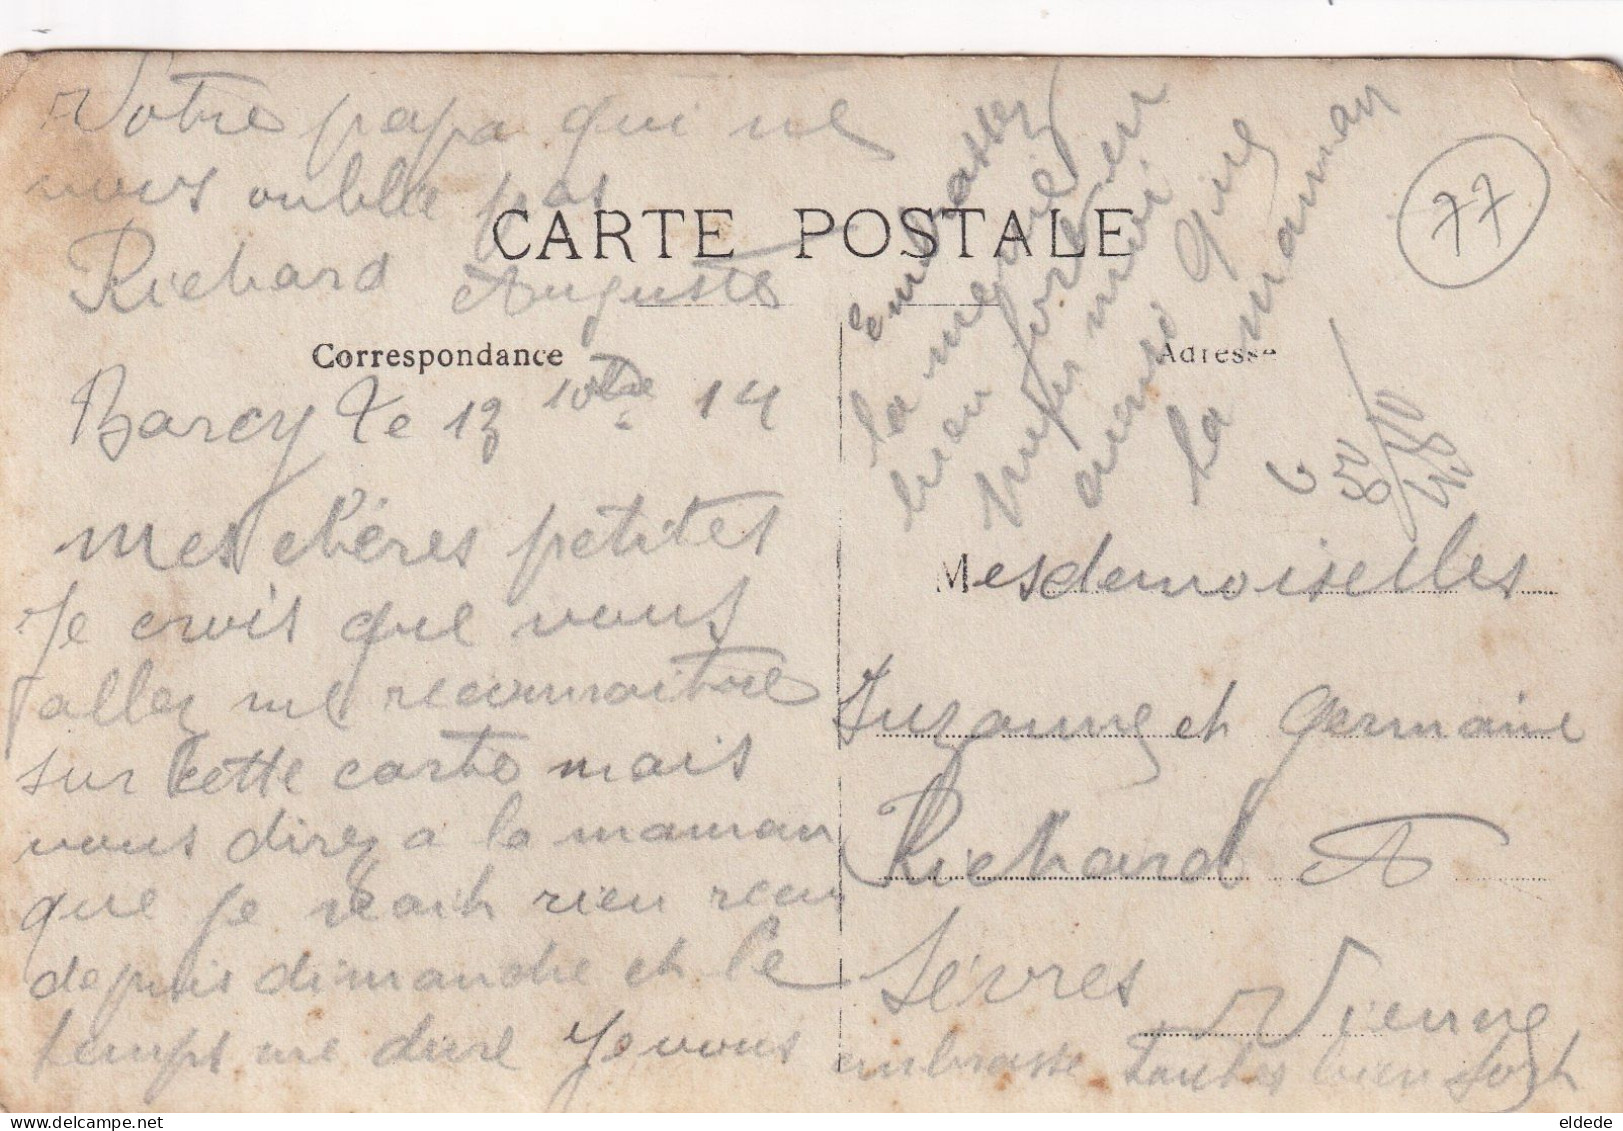 Votre papa qui ne
vous oublie pas
Richard Auguste
CARTE POSTALE
Correspondance
Adresse
77
Barcy le 13 10bre 14
mes chères petites
Je crois que vous
allez me reconnaitre
sur cette carte mais
vous direz a la maman
que je reçoit rien
depuis dimanche et le
temps me dure Je vous
embrasse toutes bien fort
Embrassez
la memé
bien fort
pour moi
ainsi que
la maman
Mesdemoiselles
Suzanne et Germaine
Richard A
Sèvres
Vienne
eldede